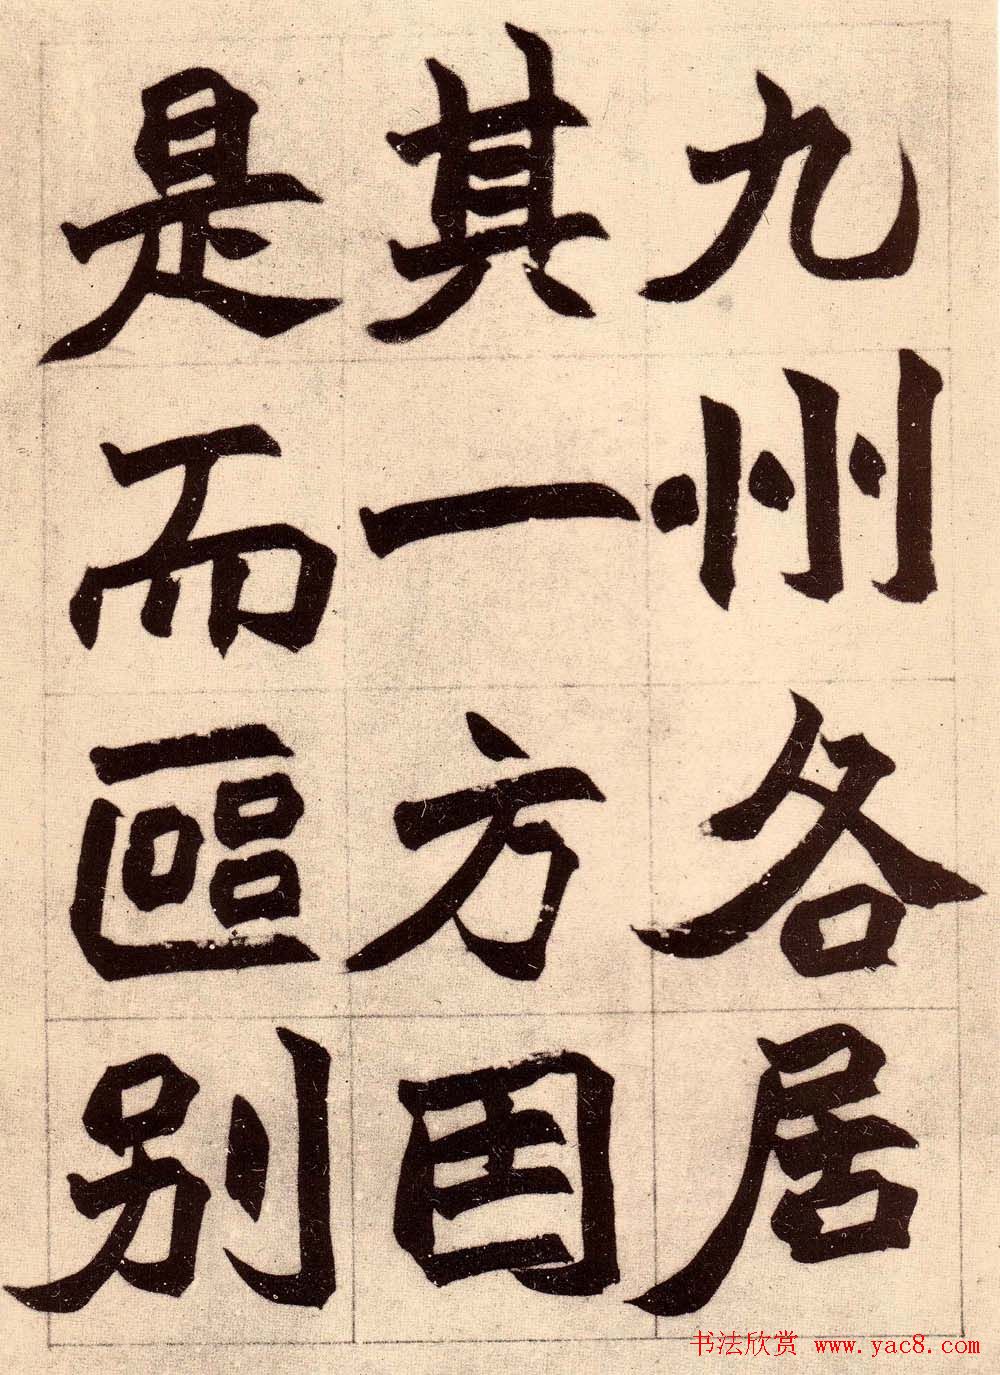 九州各居
其一方囙
是而區别
书法欣赏 www.yac8.com